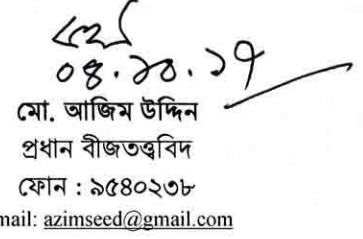 ০৪.১০.১৭
মো. আজিম উদ্দিন
প্রধান বীজতত্ত্ববিদ
ফোন : ৯৫৪০২৩৮
mail: azimseed@gmail.com